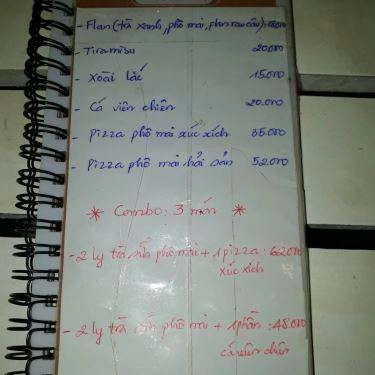 - Flan (trà xanh, phô mai, flan rau câu):
- Tiramisu 20.000
- Xoài lắc 15.000
- Cá viên chiên 20.000
- Pizza phô mai xúc xích 35.000
- Pizza phô mai hải sản 52.000
* Combo: 3 món *
- 2 ly trà sữa phô mai + 1 pizza :
xúc xích
- 2 ly trà sữa phô mai + 1 phần : 48.000
cá viên chiên